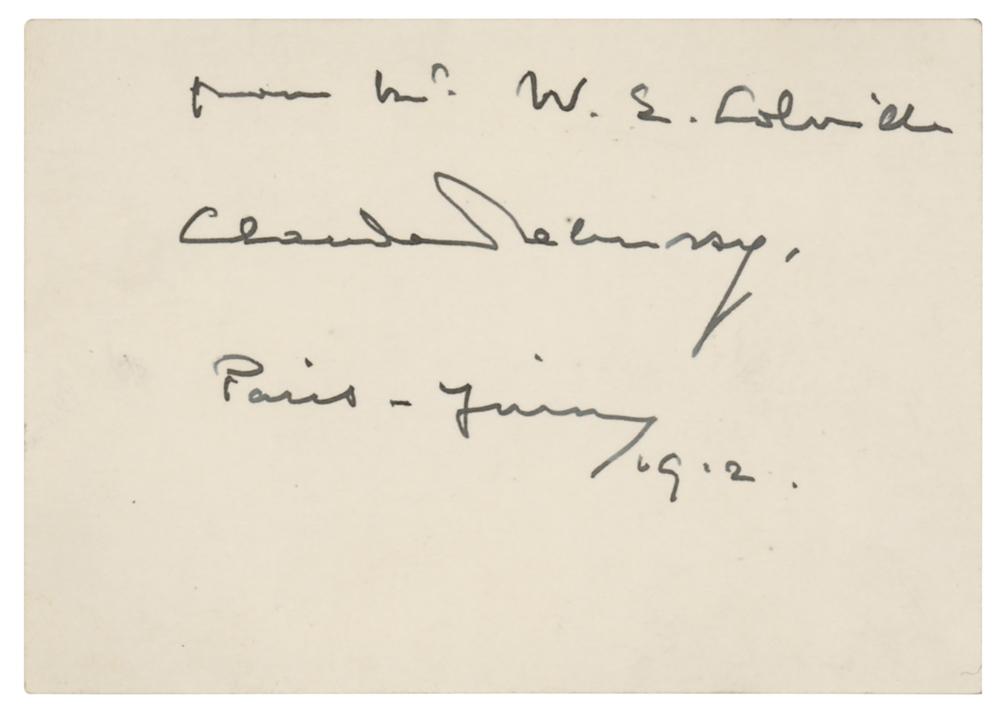 pour Mr. W. E. Colville
Claude Debussy,
Paris - Juin
1912.